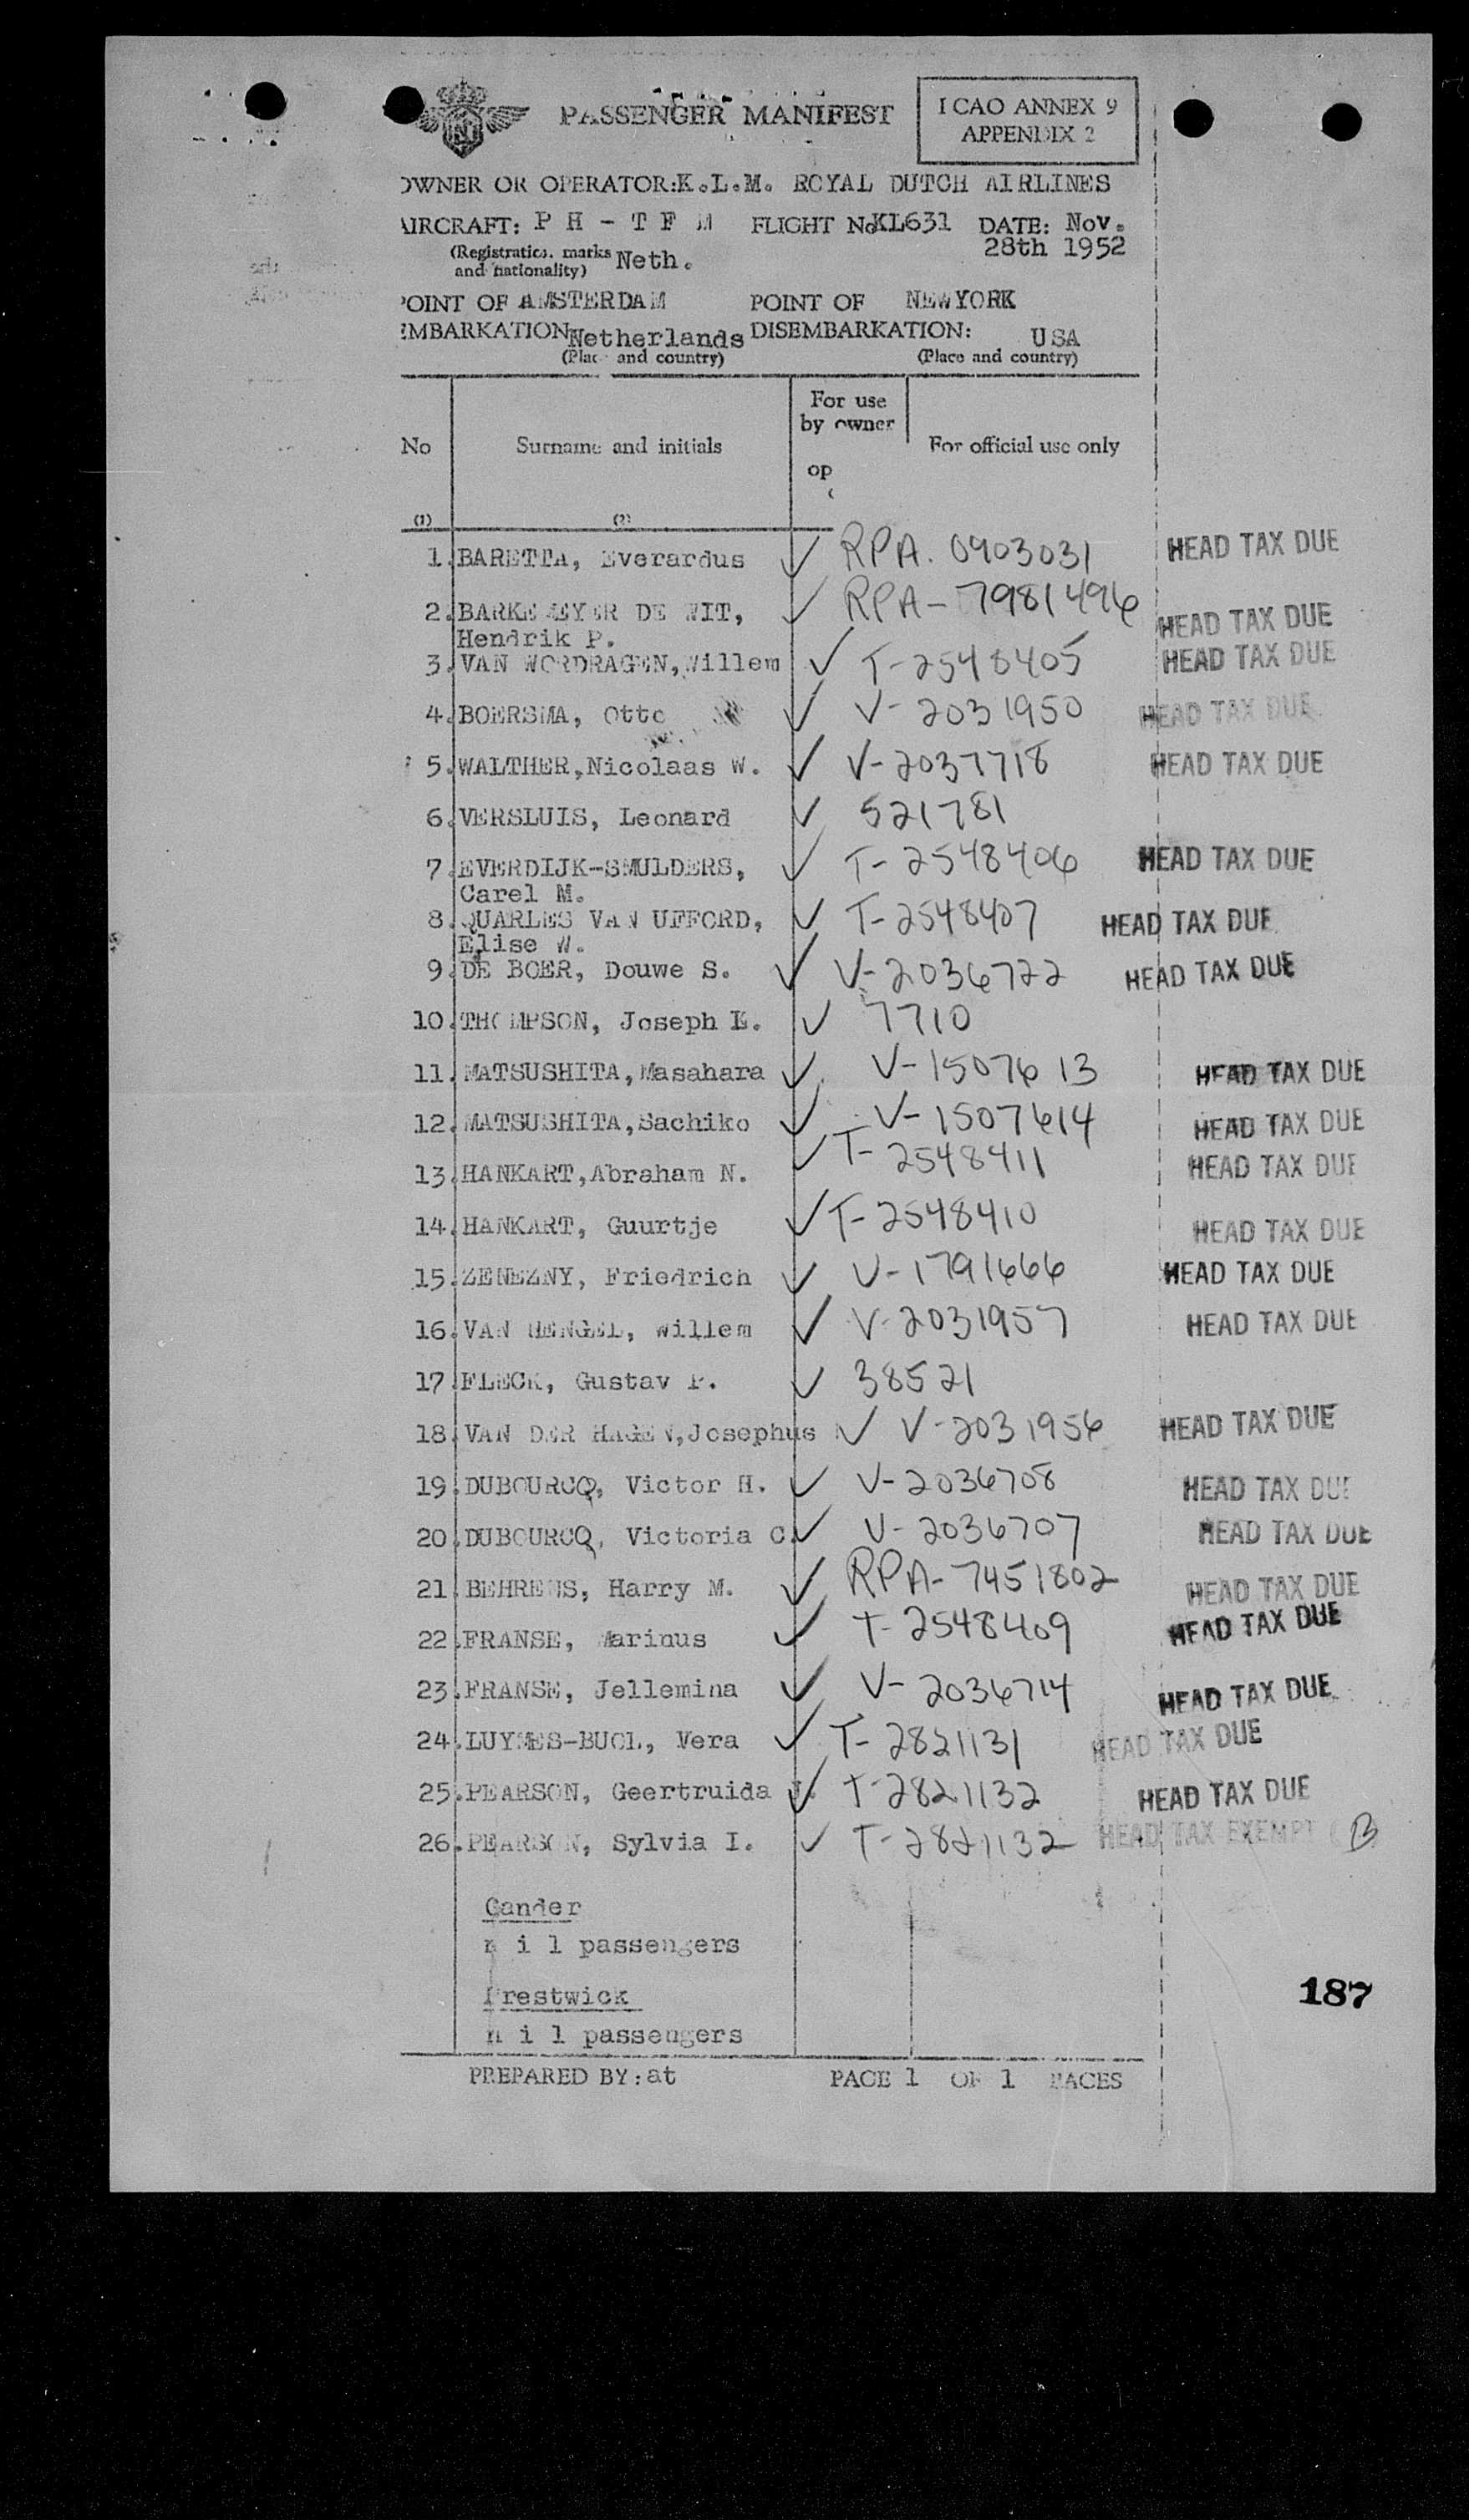 PASSENGER MANIFEST
ICAO ANNEX 9
APPENDIX 2
OWNER OR OPERATOR: K.L.M. ROYAL DUTCH AIRLINES
AIRCRAFT: P H - T F M FLIGHT No KL631 DATE: Nov.
28th 1952
(Registration marks
and nationality) Neth.
POINT OF AMSTERDAM POINT OF NEW YORK
EMBARKATION: Netherlands DISEMBARKATION: USA
(Place and country) (Place and country)
For use
by owner
No Surname and initials For official use only
op
(1) (2)
1. BARETTA, Everardus ✓ RPA. 0903031 HEAD TAX DUE
2. BARKEMEYER DE WIT, ✓ RPA- 7981496 HEAD TAX DUE
Hendrik P.
3. VAN WORDRAGEN, Willem ✓ T-2548405 HEAD TAX DUE
4. BOERSMA, Otto ✓ V-2031950 HEAD TAX DUE
5. WALTHER, Nicolaas W. ✓ V-2037718 HEAD TAX DUE
6. VERSLUIS, Leonard ✓ 521781
7. EVERDIJK-SMULDERS, ✓ T-2548406 HEAD TAX DUE
Carel M.
8. QUARLES VAN UFFORD, ✓ T-2548407 HEAD TAX DUE
Elise W.
9. DE BOER, Douwe S. ✓ V-2036722 HEAD TAX DUE
10. THOMPSON, Joseph E. ✓ 7710
11. MATSUSHITA, Masahara ✓ V-1507613 HEAD TAX DUE
12. MATSUSHITA, Sachiko ✓ V-1507614 HEAD TAX DUE
13. HANKART, Abraham N. ✓ T-2548411 HEAD TAX DUE
14. HANKART, Guurtje ✓ T-2548410 HEAD TAX DUE
15. ZENEZNY, Friedrich ✓ V-1791666 HEAD TAX DUE
16. VAN HENGEL, Willem ✓ V-2031957 HEAD TAX DUE
17. FLECK, Gustav P. ✓ 38521
18. VAN DER HAGEN, Josephus ✓ V-2031956 HEAD TAX DUE
19. DUBOURCQ, Victor H. ✓ V-2036708 HEAD TAX DUE
20. DUBOURCQ, Victoria C. ✓ V-2036707 HEAD TAX DUE
21. BEHRENS, Harry M. ✓ RPA-7451802 HEAD TAX DUE
22. FRANSE, Marinus ✓ T-2548409 HEAD TAX DUE
23. FRANSE, Jellemina ✓ V-2036714 HEAD TAX DUE
24. LUYMES-BUOL, Vera ✓ T-2821131 HEAD TAX DUE
25. PEARSON, Geertruida ✓ T-2821132 HEAD TAX DUE
26. PEARSON, Sylvia I. ✓ T-2821132 HEAD TAX EXEMPT B
Gander
n i l passengers
Prestwick
n i l passengers
187
PREPARED BY: at PAGE 1 OF 1 PAGES